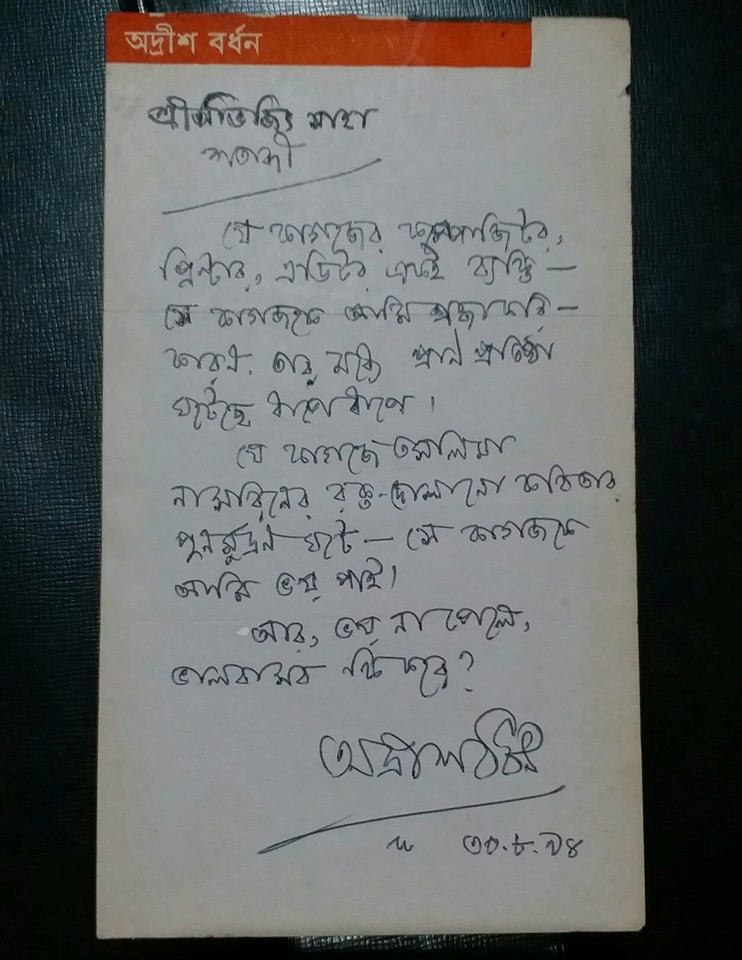 অদ্রীশ বর্ধন
শ্রীঅভিজিৎ সাহা
শতাব্দী
যে কাগজের কম্পোজিটর,
প্রিন্টার, এডিটর একই ব্যক্তি —
সে কাগজকে আমি শ্রদ্ধা করি —
কারণ, তার মধ্যে প্রাণ প্রতিষ্ঠা
ঘটেছে ধাপে ধাপে।
যে কাগজে তসলিমা
নাসরিনের রক্ত-দোলানো কবিতার
পুনর্মুদ্রন ঘটে — সে কাগজকে
আমি ভয় পাই।
আর, ভয় না পেলে,
ভালবাসব কি করে?
অদ্রীশ বর্ধন
৩০.৮.৯৪